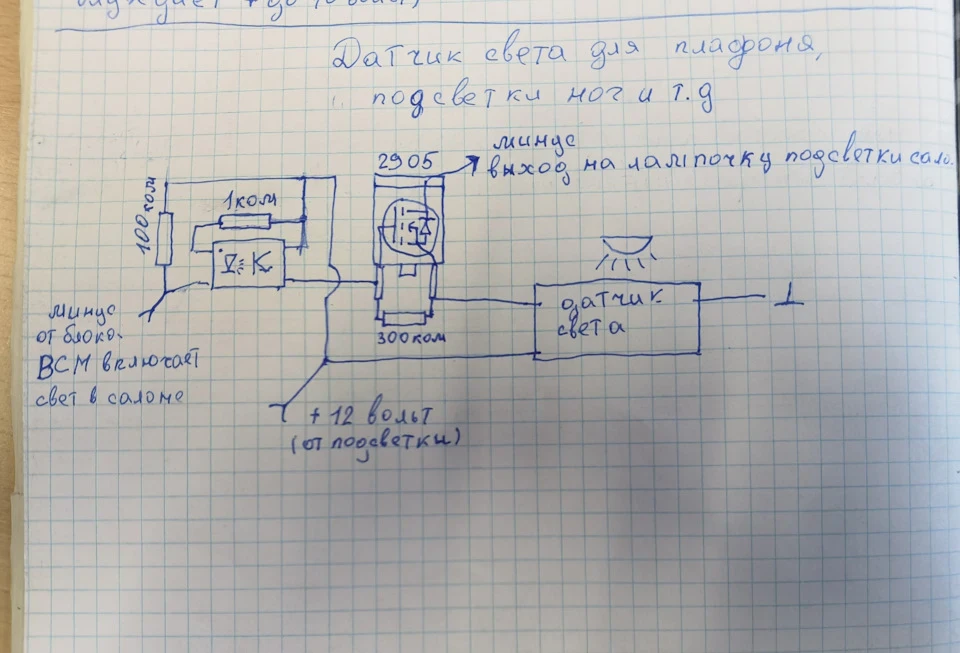 Датчик света для плафоня,
подсветки ног и т.д
2905
минус
выход на лампочку подсветки сало.
100 ком
1 ком
300 ком
датчик
света
минус
от блоко-
BCM включает
свет в салоне
+ 12 вольт
(от подсветки)